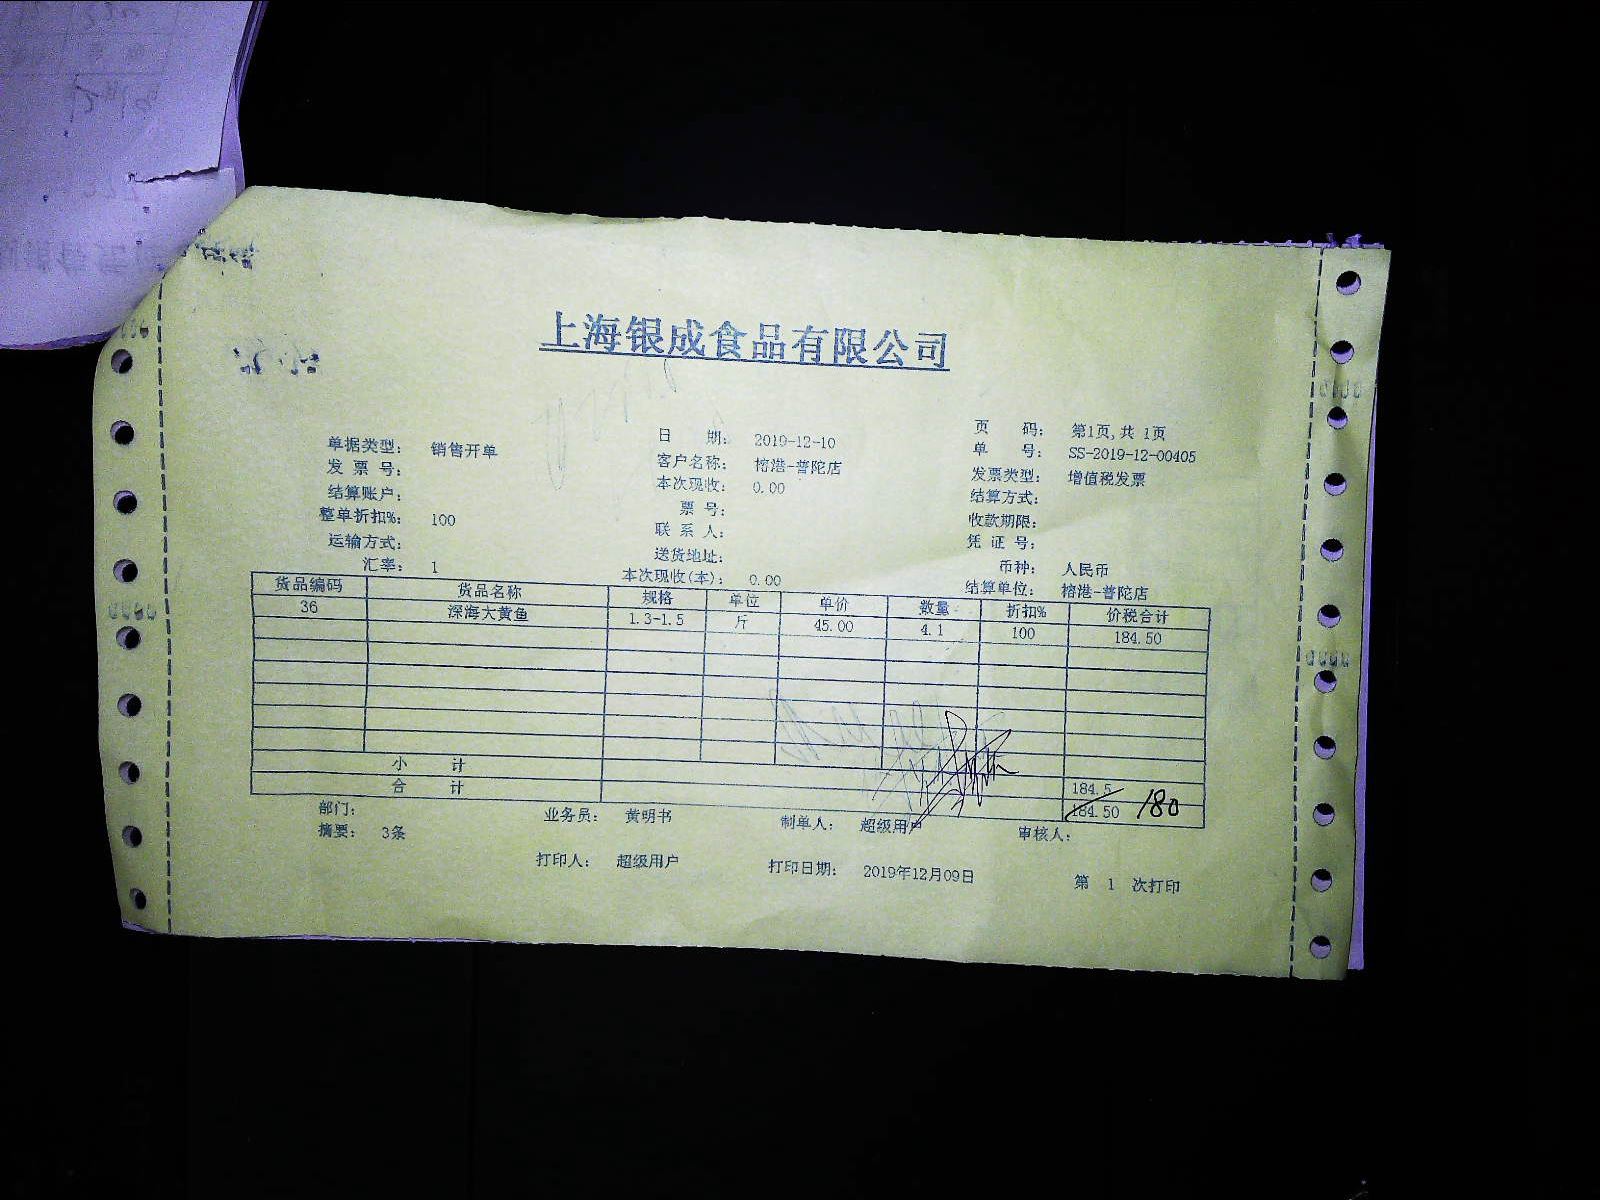 上海银成食品有限公司
单据类型： 销售开单 日 期： 2019-12-10 页 码： 第1页,共 1页
发 票 号： 客户名称： 榕港-普陀店 单 号： SS-2019-12-00405
结算账户： 本次现收： 0.00 发票类型： 增值税发票
整单折扣%： 100 票 号： 结算方式：
运输方式： 联 系 人： 收款期限：
汇率： 1 送货地址： 凭 证 号：
本次现收(本)： 0.00 币种： 人民币
结算单位： 榕港-普陀店
货品编码 货品名称 规格 单位 单价 数量 折扣% 价税合计
36 深海大黄鱼 1.3-1.5 斤 45.00 4.1 100 184.50
小 计 184.5
合 计 184.50 180
部门： 业务员： 黄明书 制单人： 超级用户 审核人：
摘要： 3条
打印人： 超级用户 打印日期： 2019年12月09日 第 1 次打印